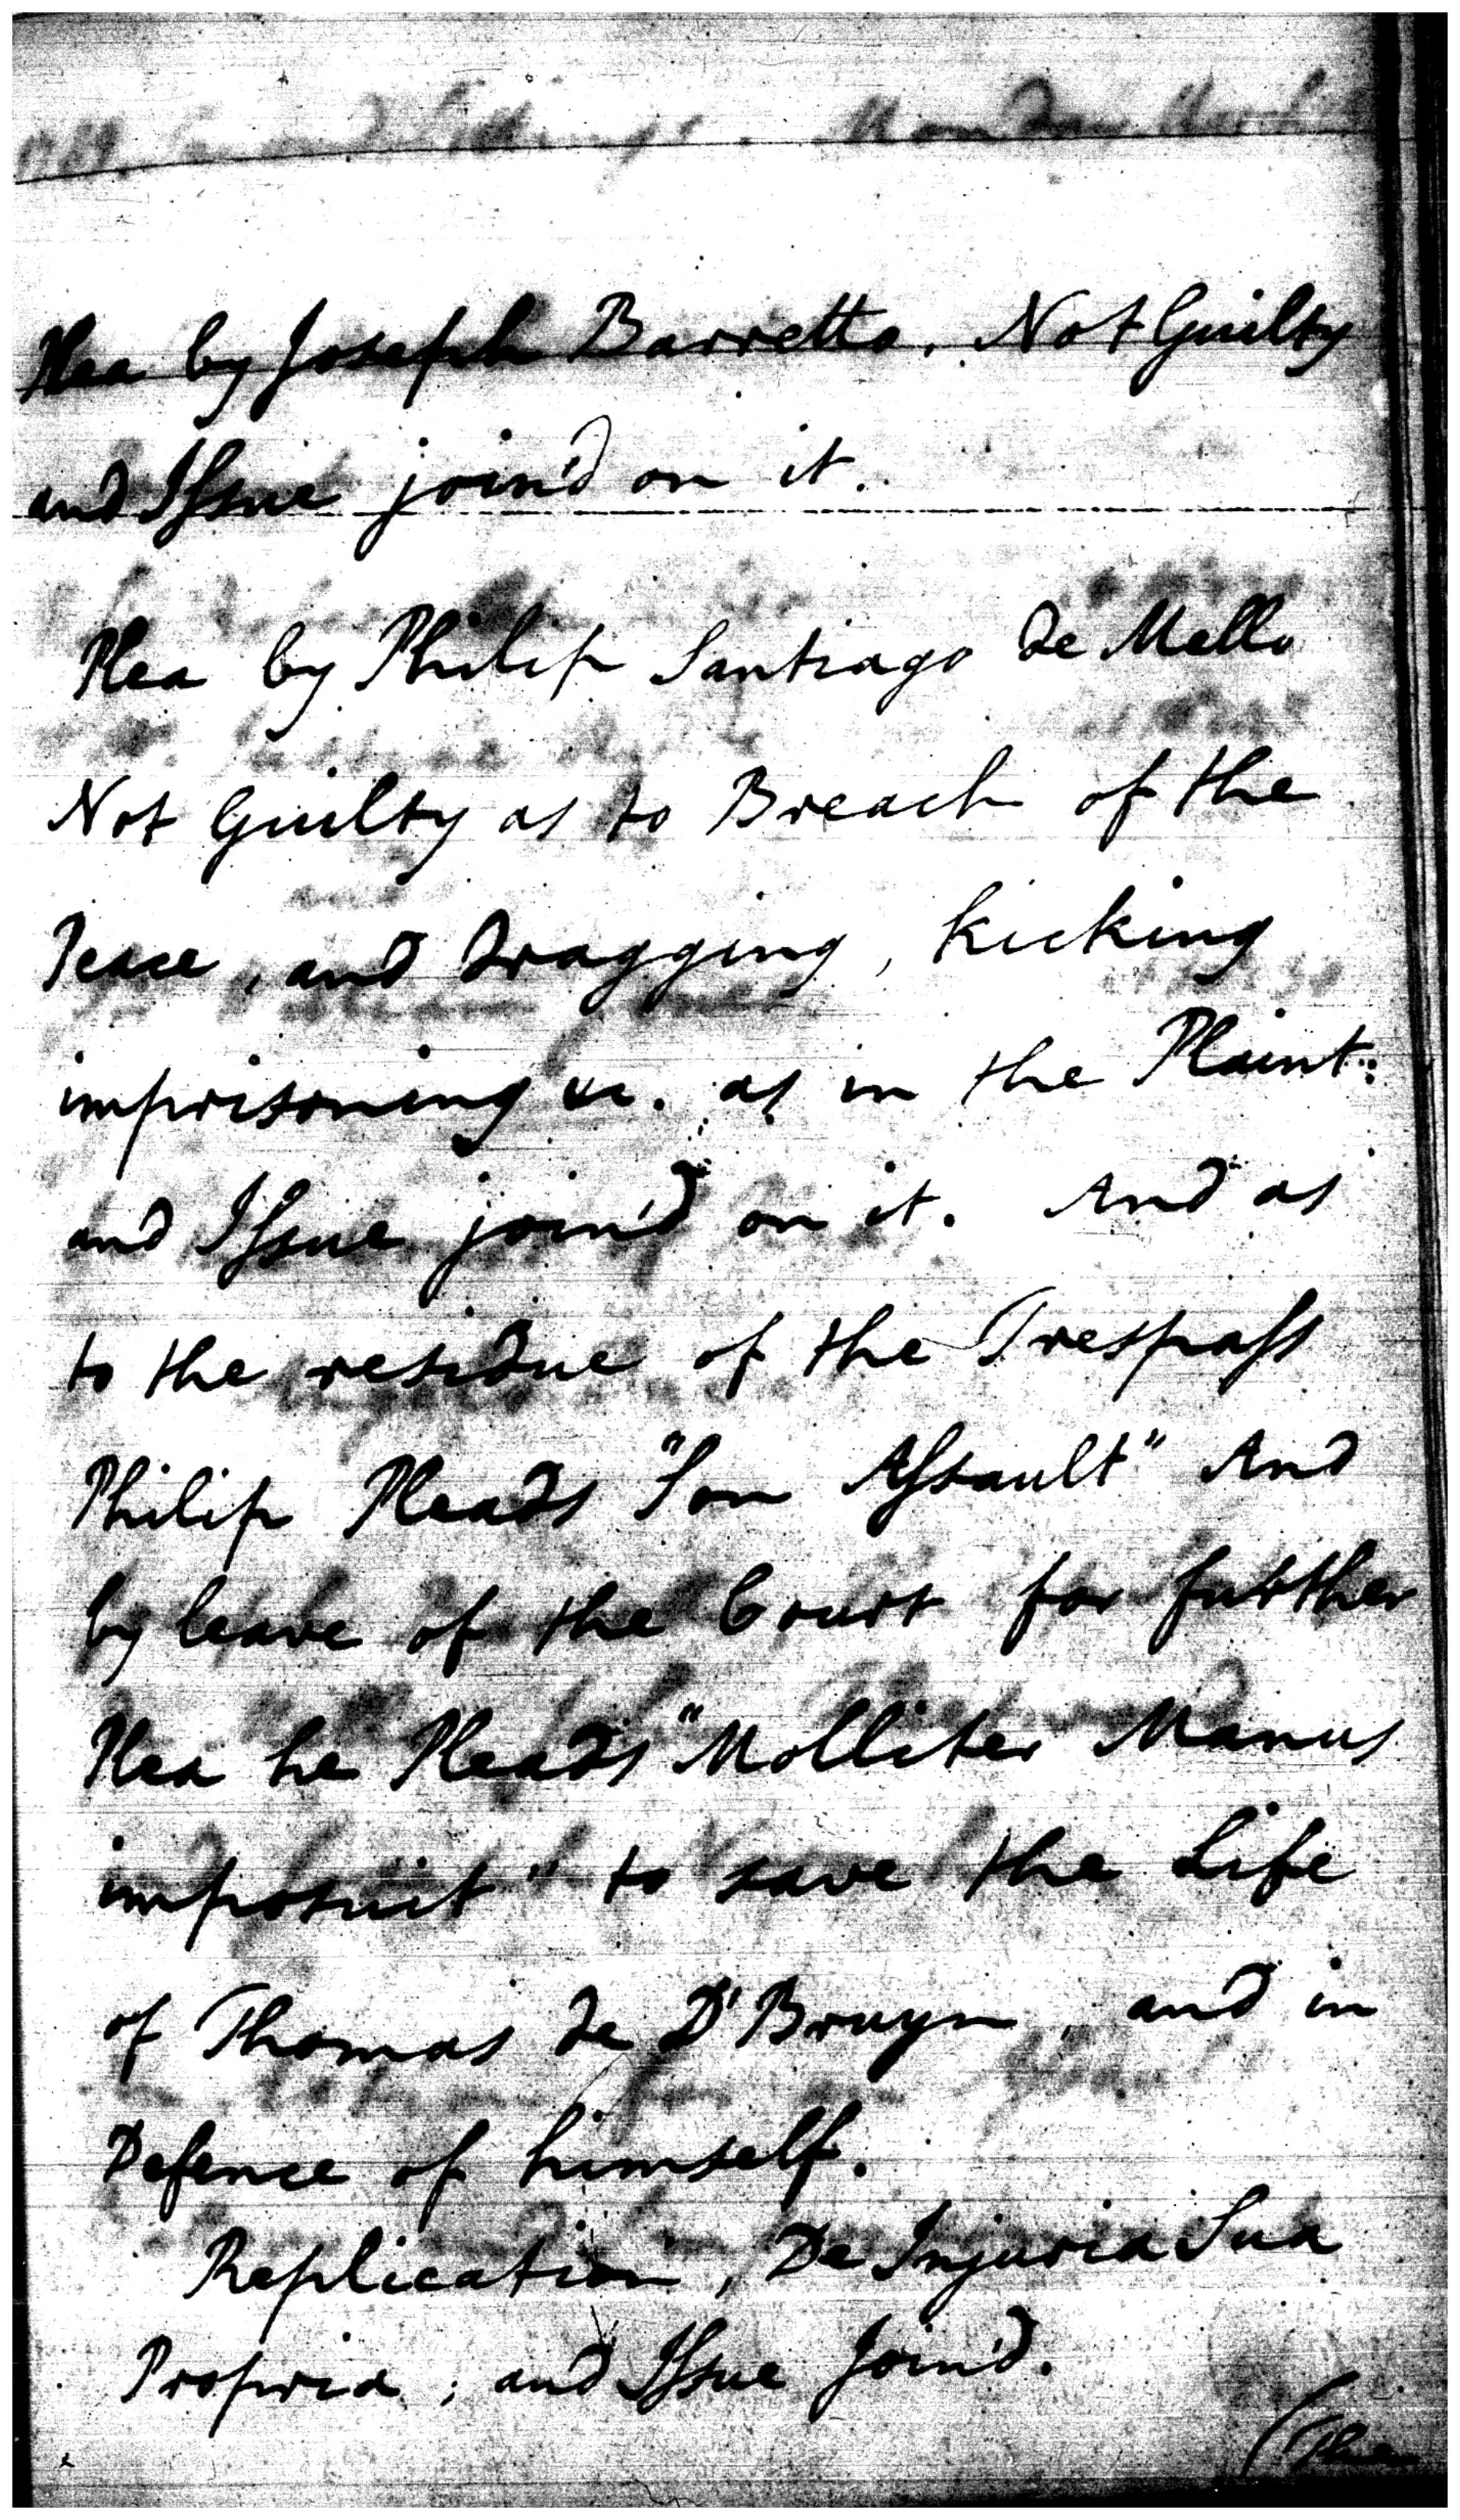 Plea by Joseph Barretto. Not Guilty
and Issue join'd on it.
Plea by Philip Santiago de Mello
Not Guilty as to Breach of the
Peace, and dragging, kicking
imprisoning &c. as in the Plaint:
and Issue join'd on it. And as
to the residue of the Trespass
Philip Pleads "Son Assault" And
by leave of the Court for further
Plea he Pleads "Molliter Manus
imposuit" to save the Life
of Thomas de D'Bruyn, and in
Defence of himself.
Replication, De Injuria Sua
Propria; and Issue Join'd.
(The